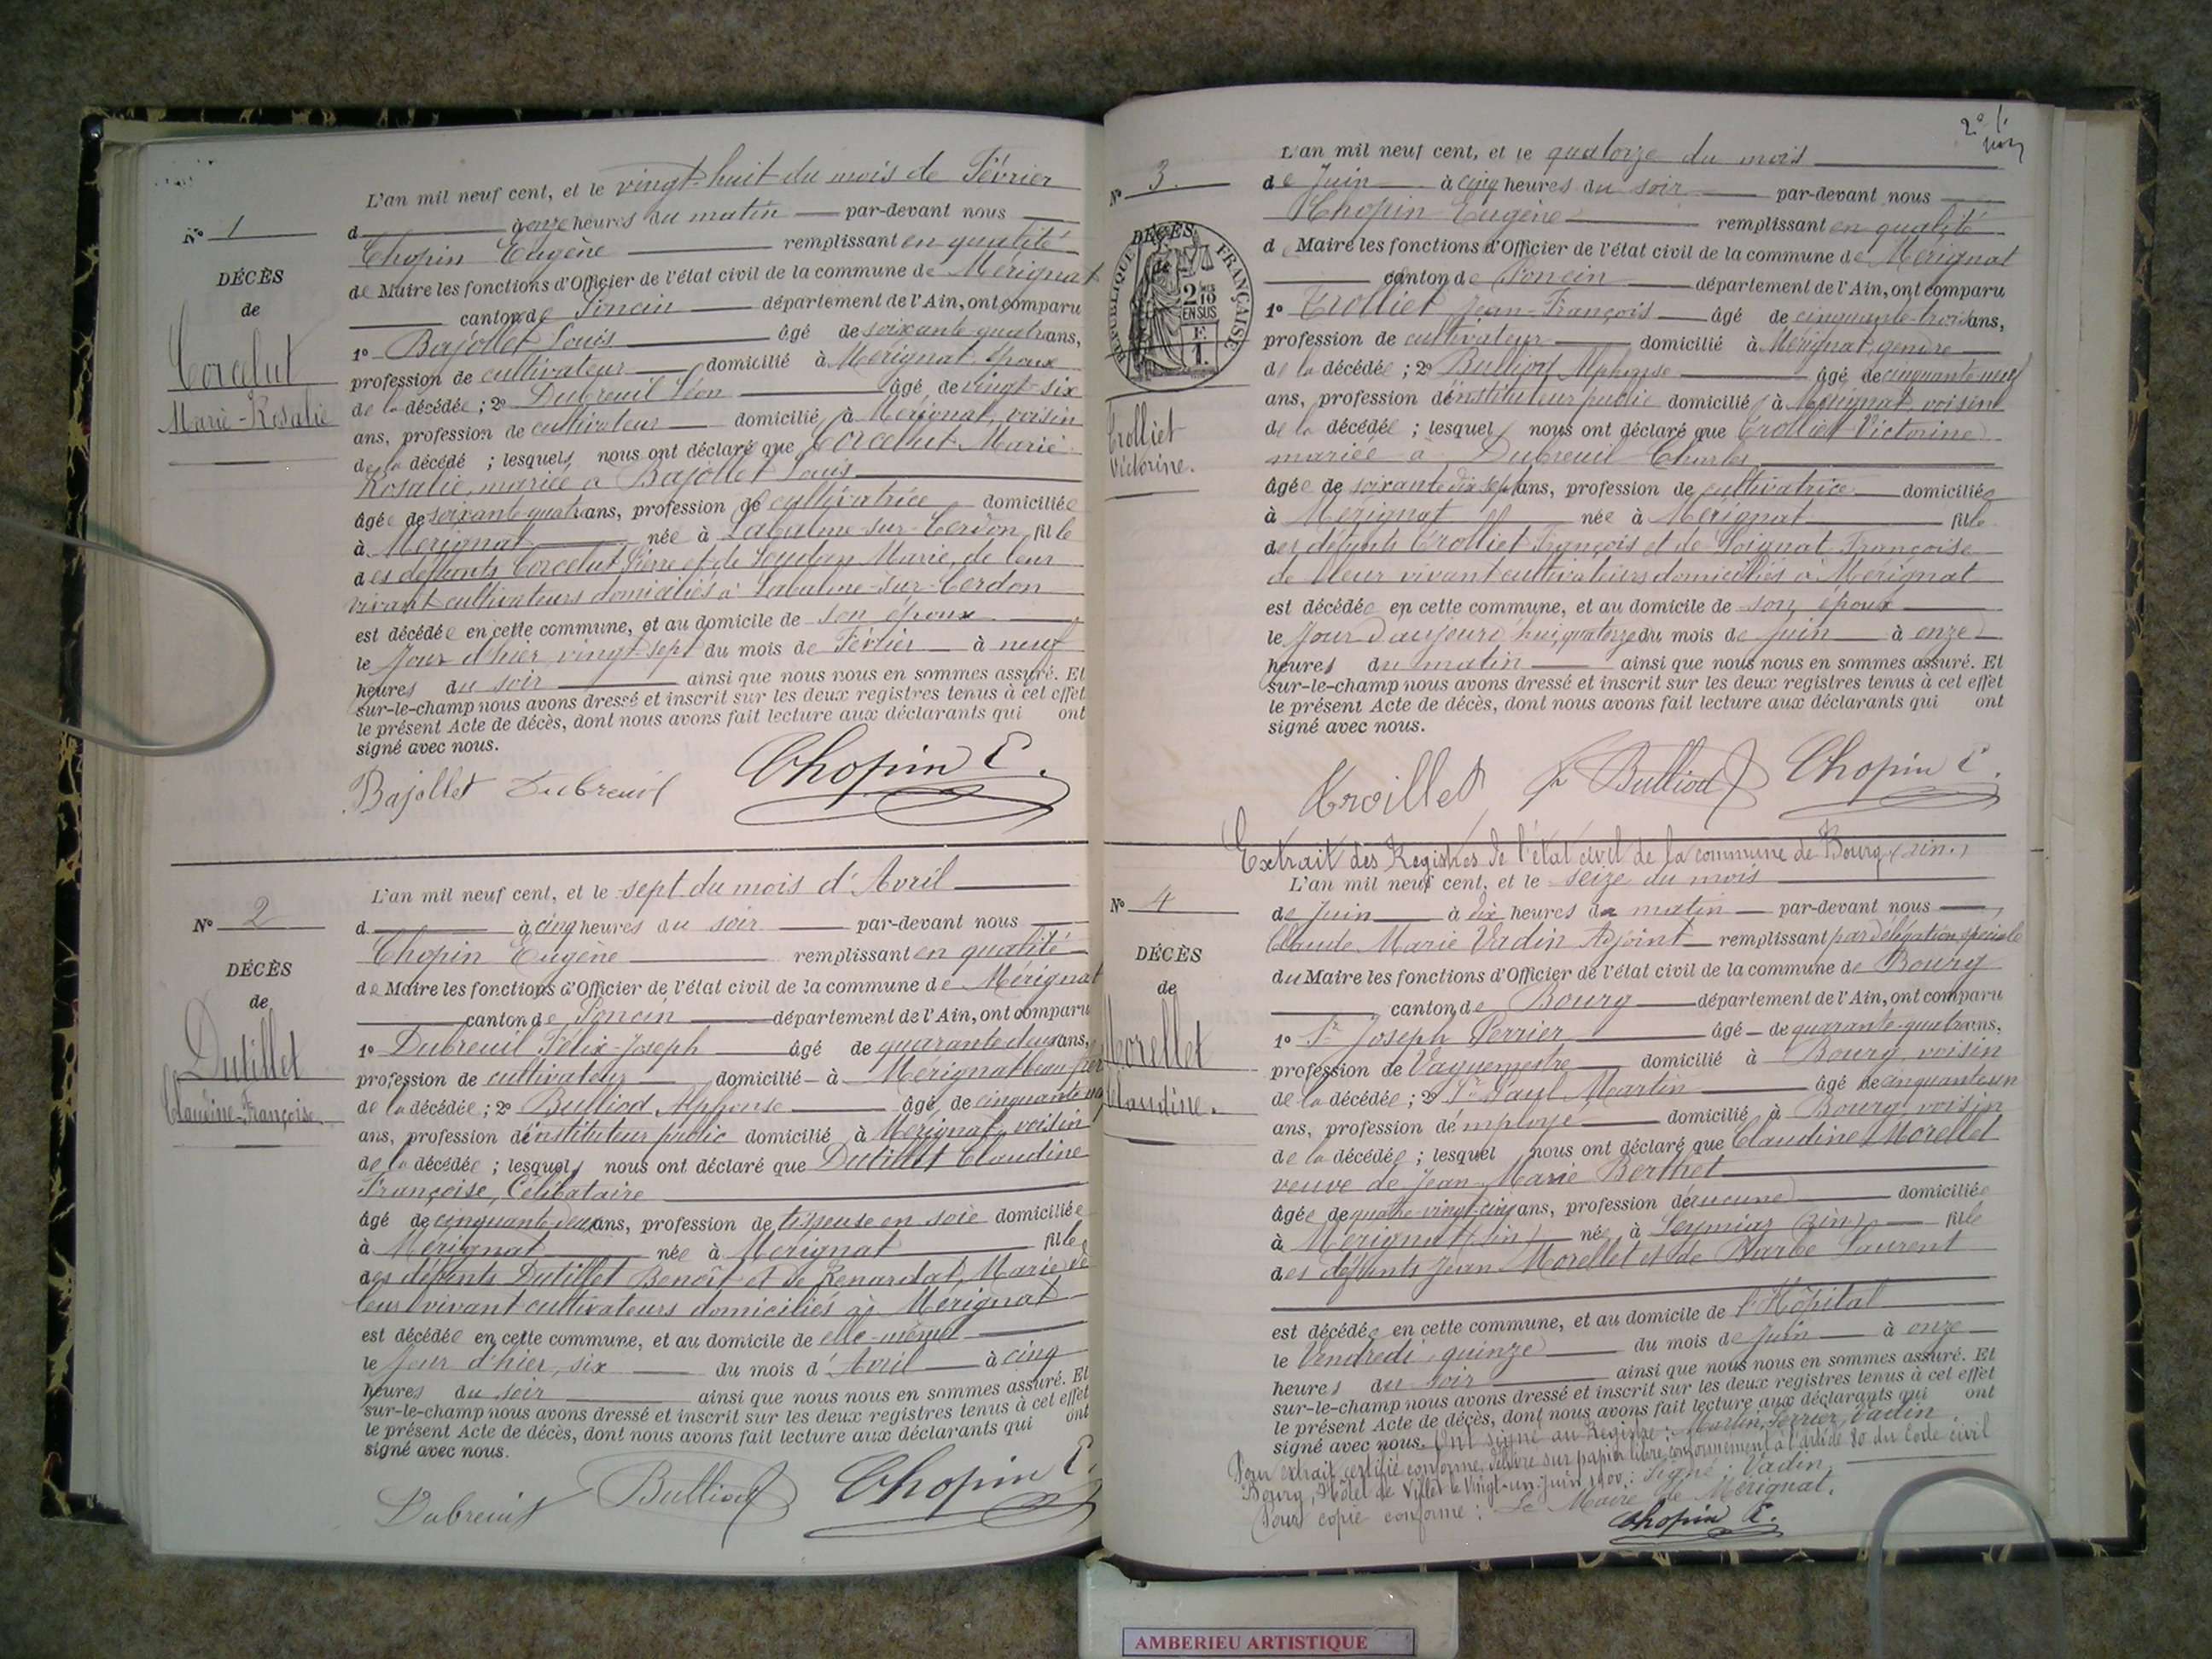 N° 1
DÉCÈS
de
Corcelut
Marie-Rosalie
L'an mil neuf cent, et le vingt-huit du mois de Février
d à onze heures du matin par-devant nous
Chopin Eugène remplissant en qualité
de Maire les fonctions d'Officier de l'état civil de la commune de Mérignat
canton de Poncin département de l'Ain, ont comparu
1° Bajollet Louis âgé de soixante-quatre ans,
profession de cultivateur domicilié à Mérignat, époux
de la décédée ; 2° Dubreuil Léon âgé de vingt-six
ans, profession de cultivateur domicilié à Mérignat, voisin
de la décédé ; lesquels nous ont déclaré que Corcelut Marie
Rosalie, mariée à Bajollet Louis
âgée de soixante-quatre ans, profession de cultivatrice domiciliée
à Mérignat née à Labalme-sur-Cerdon, fille
des deffunts Corcelut Pierre et de Marie, de leur
vivant cultivateurs domiciliés à Labalme-sur-Cerdon
est décédée en cette commune, et au domicile de son époux
le jour d'hier, vingt-sept du mois de Février à neuf
heures du soir ainsi que nous nous en sommes assuré. Et
sur-le-champ nous avons dressé et inscrit sur les deux registres tenus à cet effet
le présent Acte de décès, dont nous avons fait lecture aux déclarants qui ont
signé avec nous.
Bajollet Dubreuil Chopin E.
N° 2
DÉCÈS
de
Dutillet
Claudine-Françoise.
L'an mil neuf cent, et le sept du mois d'Avril
d à cinq heures du soir par-devant nous
Chopin Eugène remplissant en qualité
de Maire les fonctions d'Officier de l'état civil de la commune de Mérignat
canton de Poncin département de l'Ain, ont comparu
1° Dubreuil Félix-Joseph âgé de quarante deux ans,
profession de cultivateur domicilié à Mérignat beau-frère
de la décédée ; 2° Bulliod Alphonse âgé de cinquante
ans, profession d'instituteur public domicilié à Mérignat, voisin
de la décédée ; lesquels nous ont déclaré que Dutillet Claudine
Françoise, Célibataire
âgé de cinquante deux ans, profession de tisseuse en soie domiciliée
à Mérignat née à Mérignat fille
des défunts Dutillet Benoît et de Renardat Marie de
leur vivant cultivateurs domiciliés à Mérignat
est décédée en cette commune, et au domicile de elle-même
le jour d'hier, six du mois d'Avril à cinq
heures du soir ainsi que nous nous en sommes assuré. Et
sur-le-champ nous avons dressé et inscrit sur les deux registres tenus à cet effet
le présent Acte de décès, dont nous avons fait lecture aux déclarants qui ont
signé avec nous.
Dubreuil Bulliod Chopin E.
N° 3
DÉCÈS
de
RÉPUBLIQUE FRANÇAISE
2/10 EN SUS
F. 1.
Trolliet
Victorine.
L'an mil neuf cent, et le quatorze du mois
de Juin à cinq heures du soir par-devant nous
Chopin Eugène remplissant en qualité
de Maire les fonctions d'Officier de l'état civil de la commune de Mérignat
canton de Poncin département de l'Ain, ont comparu
1° Trolliet Jean-François âgé de cinquante-trois ans,
profession de cultivateur domicilié à Mérignat, gendre
de la décédée ; 2° Bulliod Alphonse âgé de cinquante-neuf
ans, profession d'instituteur public domicilié à Mérignat, voisin
de la décédée ; lesquels nous ont déclaré que Trolliet Victorine
mariée à Dubreuil Charles
âgée de soixante dix sept ans, profession de cultivatrice domiciliée
à Mérignat née à Mérignat fille
des défunts Trolliet François et de Françoise
de leur vivant cultivateurs domiciliés à Mérignat
est décédée en cette commune, et au domicile de son époux
le Jour d'aujourd'hui, quatorze du mois de Juin à onze
heures du matin ainsi que nous nous en sommes assuré. Et
sur-le-champ nous avons dressé et inscrit sur les deux registres tenus à cet effet
le présent Acte de décès, dont nous avons fait lecture aux déclarants qui ont
signé avec nous.
Bulliod Chopin E.
Extrait des Registres de l'état civil de la commune de Bourg (Ain.)
N° 4
DÉCÈS
de
Morellet
Claudine.
L'an mil neuf cent, et le seize du mois
de Juin à dix heures du matin par-devant nous
Claude Marie Vadin Adjoint remplissant par délégation spéciale
du Maire les fonctions d'Officier de l'état civil de la commune de Bourg
canton de Bourg département de l'Ain, ont comparu
1° Sr Joseph Perrier âgé de quarante-quatre ans,
profession de Vaguemestre domicilié à Bourg, voisin
de la décédée ; 2° Sr Paul Martin âgé de cinquante un
ans, profession d'employé domicilié à Bourg, voisin
de la décédée ; lesquel nous ont déclaré que Claudine Morellet
veuve de Jean Marie Berthet
âgée de quatre-vingt-cinq ans, profession d'aucune domiciliée
à Mérignat (Ain) née à Leymiat (Ain) fille
des deffunts Jean Morellet et de Barbe Laurent
est décédée en cette commune, et au domicile de l'Hôpital
le Vendredi quinze du mois de Juin à onze
heures du soir ainsi que nous nous en sommes assuré. Et
sur-le-champ nous avons dressé et inscrit sur les deux registres tenus à cet effet
le présent Acte de décès, dont nous avons fait lecture aux déclarants qui ont
signé avec nous. Ont signé au Registre : Martin, Perrier, Vadin.
Pour extrait certifié conforme, délivré sur papier libre, conformément à l'article 80 du Code civil
Bourg, Hôtel de Ville le vingt-un Juin 1900 : Signé : Vadin,
Pour copie conforme : Le Maire de Mérignat.
Chopin E.
AMBERIEU ARTISTIQUE